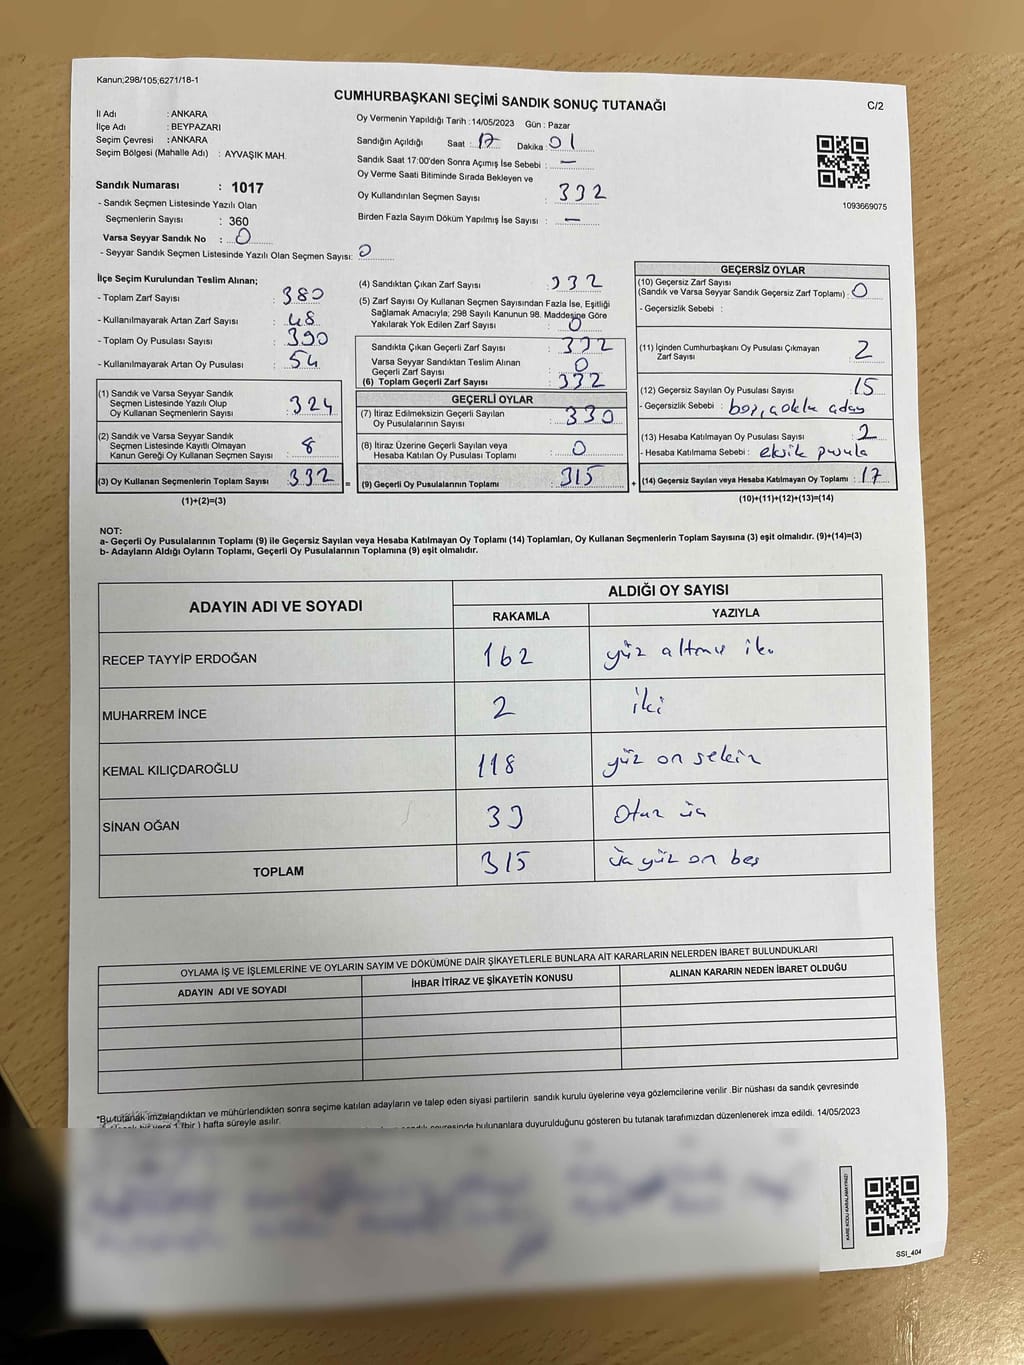 Kanun;298/105;6271/18-1
CUMHURBAŞKANI SEÇİMİ SANDIK SONUÇ TUTANAĞI
C/2
İl Adı : ANKARA
İlçe Adı : BEYPAZARI
Seçim Çevresi : ANKARA
Seçim Bölgesi (Mahalle Adı) : AYVAŞIK MAH.
Sandık Numarası : 1017
- Sandık Seçmen Listesinde Yazılı Olan
Seçmenlerin Sayısı : 360
Varsa Seyyar Sandık No : 0
- Seyyar Sandık Seçmen Listesinde Yazılı Olan Seçmen Sayısı: 0
Oy Vermenin Yapıldığı Tarih :14/05/2023 Gün : Pazar
Sandığın Açıldığı Saat : 17 Dakika : 01
Sandık Saat 17:00'den Sonra Açımış İse Sebebi : —
Oy Verme Saati Bitiminde Sırada Bekleyen ve
Oy Kullandırılan Seçmen Sayısı : 332
Birden Fazla Sayım Döküm Yapılmış İse Sayısı : —
1093669075
İlçe Seçim Kurulundan Teslim Alınan;
- Toplam Zarf Sayısı : 380
- Kullanılmayarak Artan Zarf Sayısı : 48
- Toplam Oy Pusulası Sayısı : 390
- Kullanılmayarak Artan Oy Pusulası : 54
(1) Sandık ve Varsa Seyyar Sandık
Seçmen Listesinde Yazılı Olup
Oy Kullanan Seçmenlerin Sayısı : 324
(2) Sandık ve Varsa Seyyar Sandık
Seçmen Listesinde Kayıtlı Olmayan
Kanun Gereği Oy Kullanan Seçmen Sayısı : 8
(3) Oy Kullanan Seçmenlerin Toplam Sayısı : 332
(1)+(2)=(3)
(4) Sandıktan Çıkan Zarf Sayısı : 332
(5) Zarf Sayısı Oy Kullanan Seçmen Sayısından Fazla İse, Eşitliği
Sağlamak Amacıyla; 298 Sayılı Kanunun 98. Maddesine Göre
Yakılarak Yok Edilen Zarf Sayısı : 0
Sandıkta Çıkan Geçerli Zarf Sayısı : 332
Varsa Seyyar Sandıktan Teslim Alınan
Geçerli Zarf Sayısı : 0
(6) Toplam Geçerli Zarf Sayısı : 332
GEÇERLİ OYLAR
(7) İtiraz Edilmeksizin Geçerli Sayılan
Oy Pusulalarının Sayısı : 330
(8) İtiraz Üzerine Geçerli Sayılan veya
Hesaba Katılan Oy Pusulası Toplamı : 0
= (9) Geçerli Oy Pusulalarının Toplamı : 315
GEÇERSİZ OYLAR
(10) Geçersiz Zarf Sayısı
(Sandık ve Varsa Seyyar Sandık Geçersiz Zarf Toplamı) : 0
- Geçersizlik Sebebi :
(11) İçinden Cumhurbaşkanı Oy Pusulası Çıkmayan
Zarf Sayısı : 2
(12) Geçersiz Sayılan Oy Pusulası Sayısı : 15
- Geçersizlik Sebebi : boş, çoklu aday
(13) Hesaba Katılmayan Oy Pusulası Sayısı : 2
- Hesaba Katılmama Sebebi : eksik pusula
+ (14) Geçersiz Sayılan veya Hesaba Katılmayan Oy Toplamı : 17
(10)+(11)+(12)+(13)=(14)
NOT:
a- Geçerli Oy Pusulalarının Toplamı (9) ile Geçersiz Sayılan veya Hesaba Katılmayan Oy Toplamı (14) Toplamları, Oy Kullanan Seçmenlerin Toplam Sayısına (3) eşit olmalıdır. (9)+(14)=(3)
b- Adayların Aldığı Oyların Toplamı, Geçerli Oy Pusulalarının Toplamına (9) eşit olmalıdır.
ADAYIN ADI VE SOYADI ALDIĞI OY SAYISI
RAKAMLA YAZIYLA
RECEP TAYYİP ERDOĞAN 162 yüz altmış iki
MUHARREM İNCE 2 iki
KEMAL KILIÇDAROĞLU 118 yüz on sekiz
SİNAN OĞAN 33 Otuz üç
TOPLAM 315 üç yüz on beş
OYLAMA İŞ VE İŞLEMLERİNE VE OYLARIN SAYIM VE DÖKÜMÜNE DAİR ŞİKAYETLERLE BUNLARA AİT KARARLARIN NELERDEN İBARET BULUNDUKLARI
ADAYIN ADI VE SOYADI İHBAR İTİRAZ VE ŞİKAYETİN KONUSU ALINAN KARARIN NEDEN İBARET OLDUĞU
*Bu tutanak imzalandıktan ve mühürlendikten sonra seçime katılan adayların ve talep eden siyasi partilerin sandık kurulu üyelerine veya gözlemcilerine verilir .Bir nüshası da sandık çevresinde
bir yere 1 (bir ) hafta süreyle asılır.
çevresinde bulunanlara duyurulduğunu gösteren bu tutanak tarafımızdan düzenlenerek imza edildi. 14/05/2023
KARE KODU KARALAMAYINIZ!
SSI_404